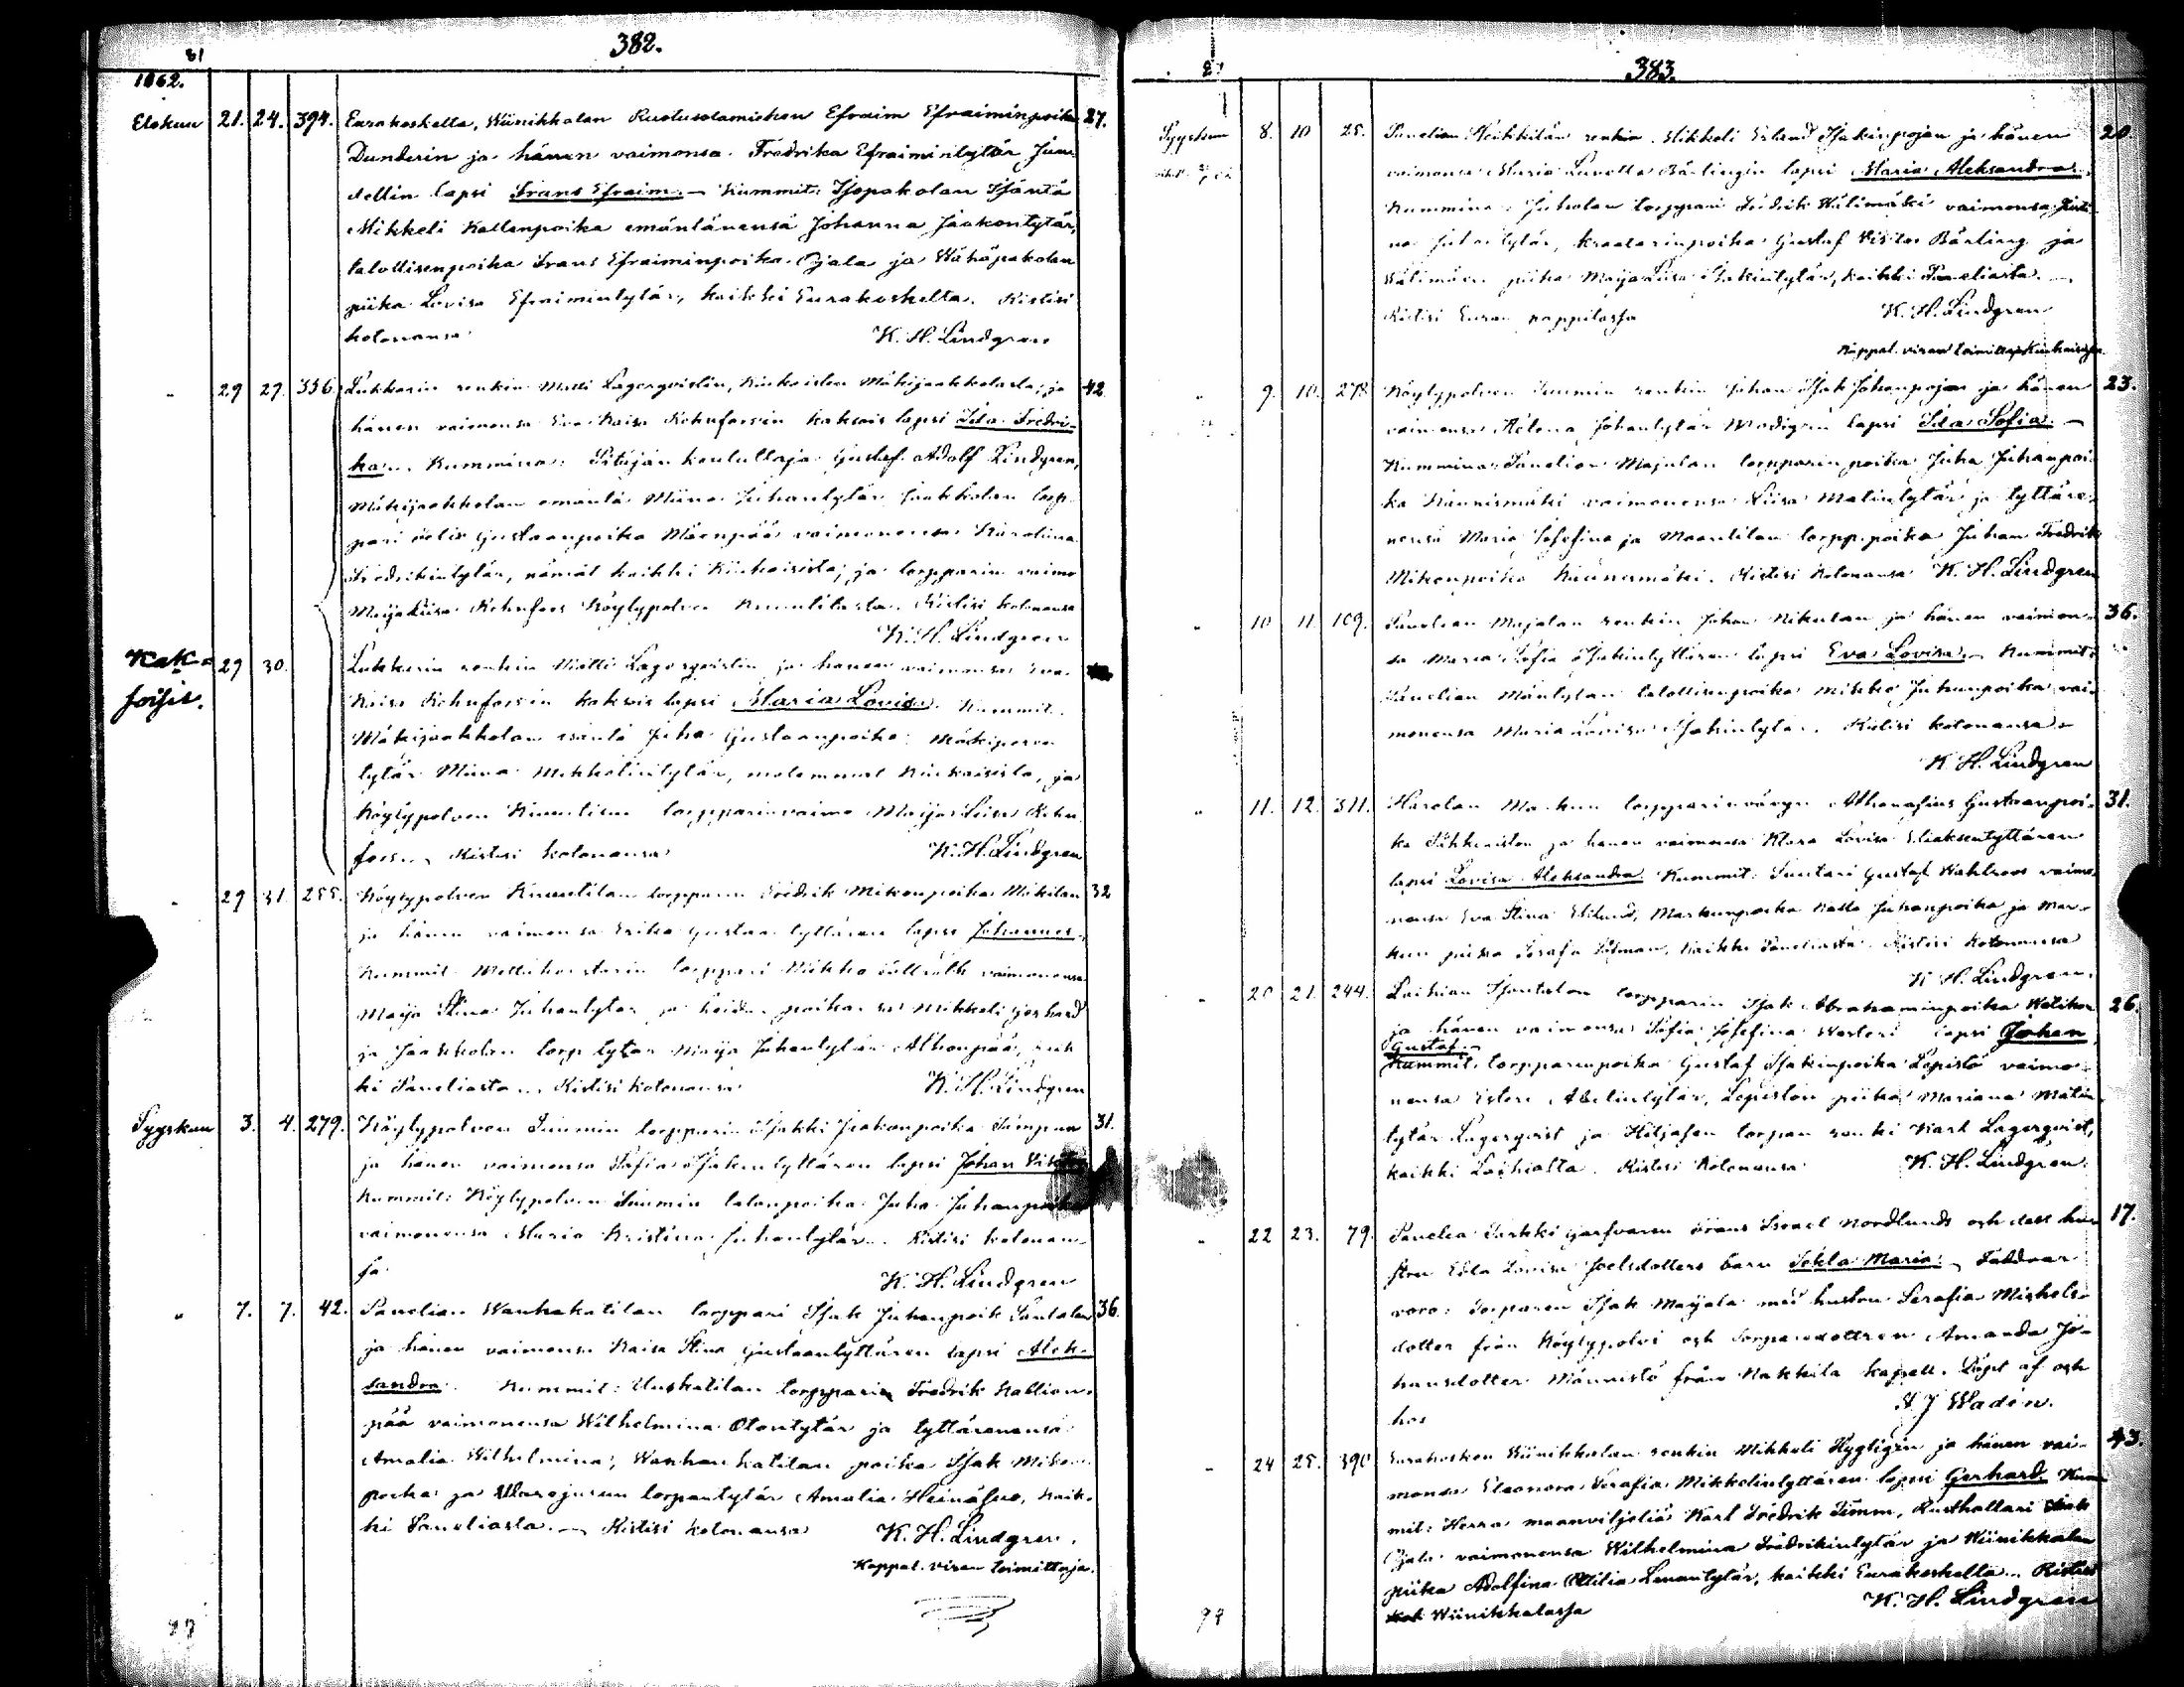 81
382.
1862.
Elokuu 21. 24. 394. Eurakoskelta, Wiinikkalan Ruotusotamiehen Efraim Efraiminpoika 27.
Dunderin ja hänen vaimonsa Fredrika Efraimintytär Jun-
dellin lapsi Frans Efraim. — Kummit: Isopakolan Isäntä
Mikkeli Kallenpoika emäntänensä Johanna Jaakontytär,
talollisenpoika Frans Efraiminpoika Ojala ja Wähäpakolan
piika Lovisa Efraimintytär, kaikki Eurakoskelta. Ristisi
kotonansa K. H. Lindgren
" 29 27. 336 Lukkarin renkin Matti Lagerqvistin, Kiukaisten Mäkijaakkolasta, ja 42
hänen vaimonsa Eva Kaisa Rehnforsin kaksois lapsi Ida Fredri-
ka. Kummina: Pitäjän koulullaja Gustaf Adolf Lindgren,
Mäkijaakkolan emäntä Miina Juhantytär Jaakkolan torp-
pari Gustaanpoika Mäenpää vaimonensa Karoliina
Fredrikintytär, nämät kaikki Kiukaisista, ja torpparin vaimo
Maijaliisa Rehnfors Köylypolven Knuutilasta. Ristisi kotonansa
K. H. Lindgren
Kak-
soiset. 29 30. Lukkarin renkin Matti Lagerqvistin ja hänen vaimonsa Eva
Kaisa Rehnforsin kaksois lapsi Maria Lovisa. Kummit.
Mäkijaakkolan isäntä Juha Gustaanpoika: Mäkiperen
tytär Miina Mikkelintytär, molemmat Kiukaisista, ja
Köylypolven Knuutilan torpparinvaimo Maija Liisa Rehn
fors. Ristisi kotonansa K. H. Lindgren
" 29 31. 255. Köylypolven Knuutilan torpparin Fredrik Mikonpoika Mäkilan 32
ja hänen vaimonsa Erika Gustaan tyttären lapsi Johannes.
Kummit torppari Mikko vaimonensa
Maija Stina Juhantytär ja heidän poikansa Mikkeli Gerhard
ja Jaakkolan torp tytär Maija Juhantytär Alhonpää, kaik
ki Paneliasta. Ristisi kotonansa K. H. Lindgren
Syyskuu 3. 4. 279. Köylypolven Tuumin torpparin Isakki Jaakonpoika 31.
ja hänen vaimonsa Sofia Isakintyttären lapsi Johan Viktor
Kummit: Köylypolven Tuumin talonpoika Juha Juhanpoika
vaimonensa Maria Kristiina Juhantytär. Ristisi kotonan-
sa K. H. Lindgren
" 7. 7. 42. Panelian Wanhakatilan torppari Isak Juhanpoik Santalan 36.
ja hänen vaimonsa Kaisa Stina Gustaantyttären lapsi Alek-
sandra. Kummit: Uuskatilan torpparin Fredrik Kallion-
pää vaimonensa Wilhelmina Otontytär ja tyttärenensä
Amalia Wilhelmina, Wanhankatilan poika Isak Mikon-
poika ja torpantytär Amalia Heinäsuo, kaik-
ki Paneliasta. — Ristisi kotonansa K. H. Lindgren.
Kappal. viran toimittaja.
383.
Syyskuu 8. 10 25. Panelian Heikkilän renkin Mikkeli Erland Isakinpojan ja hänen 20
vaimonsa Maria Lovisa Bärlingin lapsi Maria Aleksandra.
Kummina: Juholan torppari Fredrik Wälimäki vaimonsa
na tytär, kraatarinpoika Gustaf Viktor Bärling ja
Wälimäen piika Maijaliisa Isakintytär, kaikki Paneliasta. —
Ristisi Euran pappilassa K. H. Lindgren
Kappal. viran toimittaja Kiukaisissa.
" 9. 10. 278 Köylypolven Tuumin renkin Johan Isak Johanpojan ja hänen 23.
vaimonsa Helena Johantytär Modigrin lapsi Ida Sofia. —
Kummina: Panelian Majalan torpparin poika Juha Juhanpoi-
ka Kännismäki vaimonensa Liisa Matintytär ja tyttäre-
nensä Maria Josefina ja Maantilan torpp. poika Juhan Fredrik
Mikonpoika. Ristisi kotonansa K. H. Lindgren
" 10 11. 109. Panelian Majalan renkin Johan Nikulan ja hänen vaimon- 36.
sa Maria Sofia Isakintyttären lapsi Eva Lovisa. — Kummit:
Panelian Mäntylan talollisenpoika Mikko Juhanpoika vai-
monensa Maria Lovisa Isakintytär. Ristisi kotonansa.
K. H. Lindgren
" 11. 12. 311. Harolan torpparin Athanasius Gustaanpoi- 31.
ka ja hänen vaimonsa Klara Lovisa Eliaksentyttären
lapsi Lovisa Aleksandra. Kummit: Suutari Gustaf Wahlroos vaimo-
nensa Eva Stina Eklund, Markunpoika Kalle Juhanpoika ja Mar-
kun piika Serafia, kaikki Paneliasta. Ristisi kotonansa
K. H. Lindgren.
" 20 21. 244. Laihian Isontalon torpparin Isak Abrahaminpoika 26.
ja hänen vaimonsa Sofia Josefina lapsi Johan
Gustaf. —
Kummit: torpparinpoika Gustaf Isakinpoika Lepistö vaimo-
nensa Esteri Abelintytär, Lepistön piika Mariana Matin
tytär Lagerqvist ja torpan renki Karl Lagerqvist,
kaikki Laihiasta. Ristisi kotonansa K. H. Lindgren.
" 22 23. 79. Panelia Sarkki garfvaren Frans Israel Nordlunds och dess hu- 17.
stru Edla Lovisa Joelsdotters barn Tekla Maria. — Faddrar
voro: Torparen Isak Maijala med hustru Serafia Michels-
dotter från Köylypolvi och torparedottren Amanda Jo-
hansdotter Männistö från Nakkila kapell. Döpt af och
hos A J Wadén.
" 24 25. 390 Eurakosken Wiinikkalan renkin Mikkeli Flygtigin ja hänen vai- 43.
monsa Eleonora Serafia Mikkelintyttären lapsi Gerhard. Kum-
mit: Herra maanviljeliä Karl Fredrik Timm, Rusthollari
Ojala vaimonensa Wilhelmina Fredrikintytär ja Wiinikkalan
piika Adolfina Ottilia, kaikki Eurakoskelta. Ristisi
Wiinikkalassa K. H. Lindgren